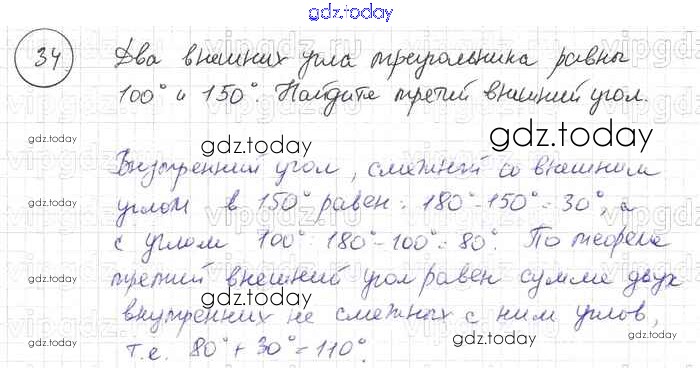 gdz.today
34 Два внешних угла треугольника равны
100° и 150°. Найдите третий внешний угол.
gdz.today
gdz.today
Внутренний угол, смежный со внешним
углом в 150° равен: 180°-150°=30°, а
с углом 100° 180°-100°=80°. По теореме
третий внешний угол равен сумме двух
gdz.today
gdz.today
внутренних не смежных с ним углов,
т.е. 80°+30°=110°.
gdz.today